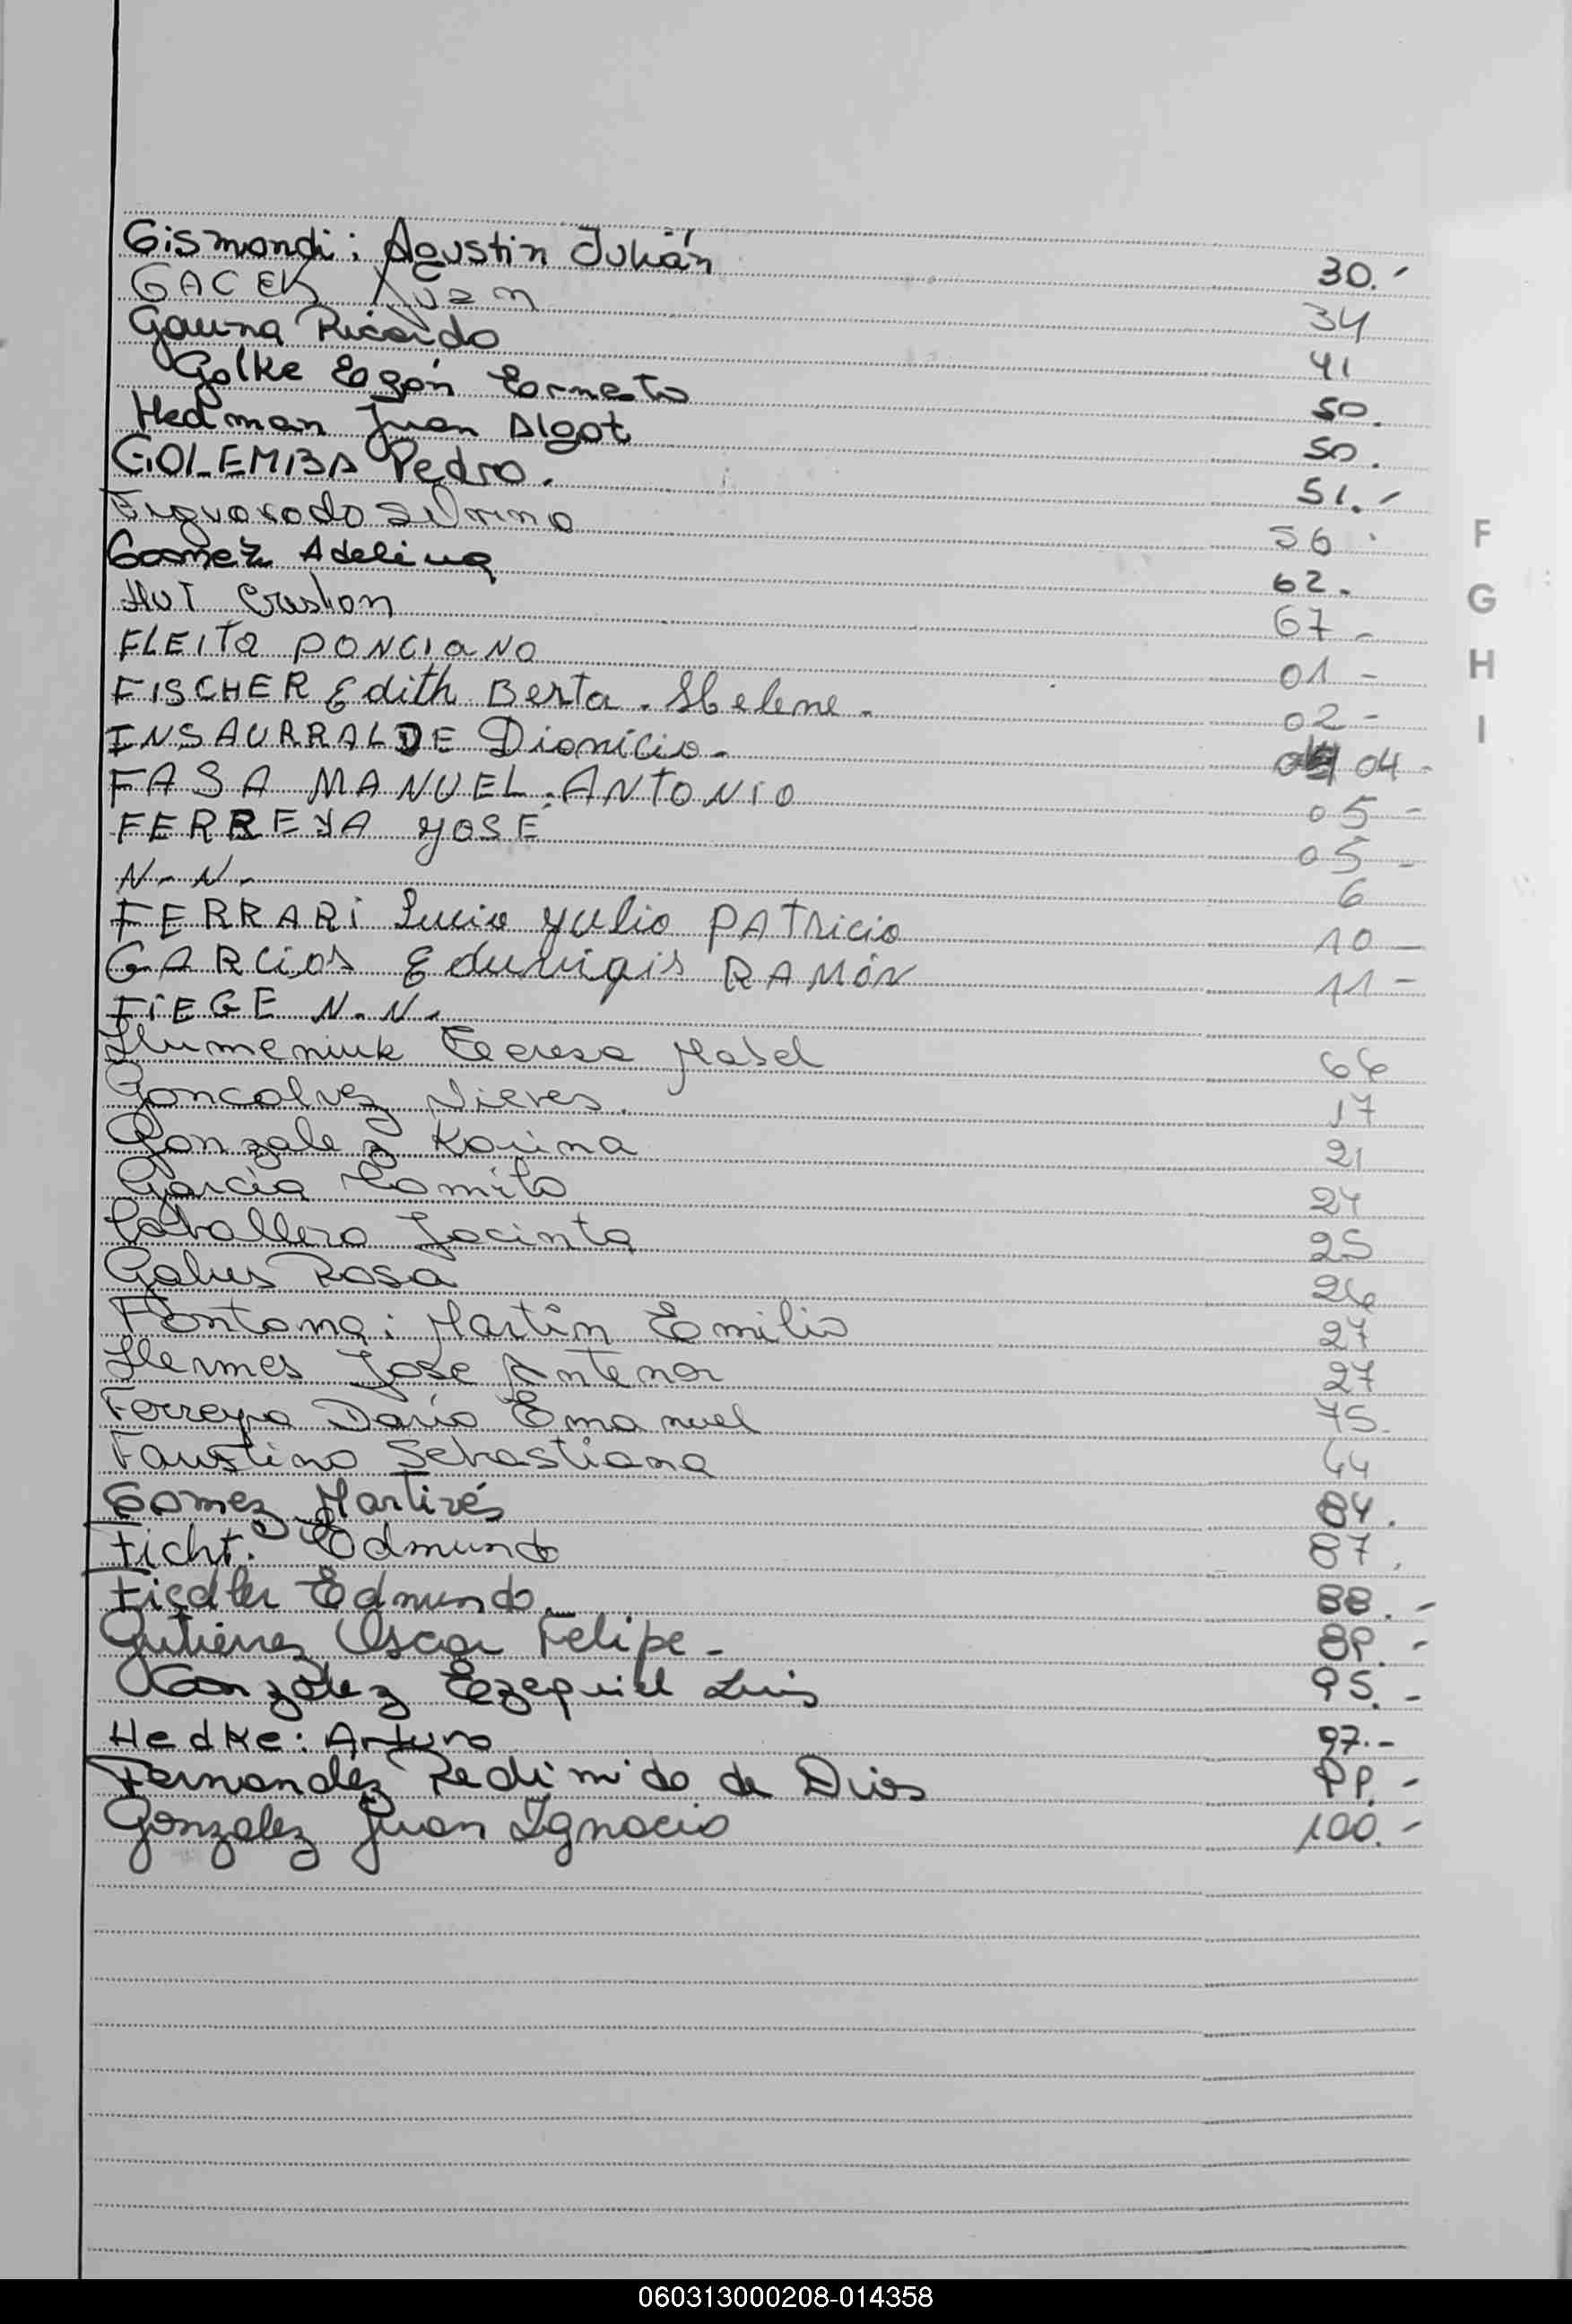 Gismondi: Agustin Julián 30.-
GACEK Juan 34
Gauna Ricardo 41
Golke Egón Ernesto 50.
Hedman Juan Algot 50.
GOLEMBA Pedro. 51.-
Figueredo 56.
Gomez Adelina 62.
HUT Cristian 67-
FLEITa PONCIaNO 01-
FISCHER Edith Berta. Helene- 02-
INSAURRALDE Dionicio- 04-
FASA MANUEL ANTONIO 05-
FERREYA YOSÉ 05-
N-N- 6
FERRARi Lucio yulio PATricio 10-
GARCios Eduvigis RAMÓN 11-
FiEGE N.N.
Humeniuk Teresa Mabel 66
Goncalvez Nieves. 17
Gonzalez Karina 21
Garcia Ramito 24
Caballero Jacinta 25
Galus Rosa 26
Fontana: Martin Emilio 27
Hermes Jose Antenor 27
Ferreyra Darío Emanuel 75-
Faustino Sebastiana 44
Gomez Martirés 84.
Ficht. Edmundo 87.
Fiedler Edmundo. 88.-
Gutierrez Oscar Felipe- 89.-
Gonzalez Ezequiel Luis 95.-
Hedke: Arturo 97.-
Fernandez Redimido de Dios 99.-
Gonzalez Juan Ignacio 100.-
F
G
H
I
060313000208-014358